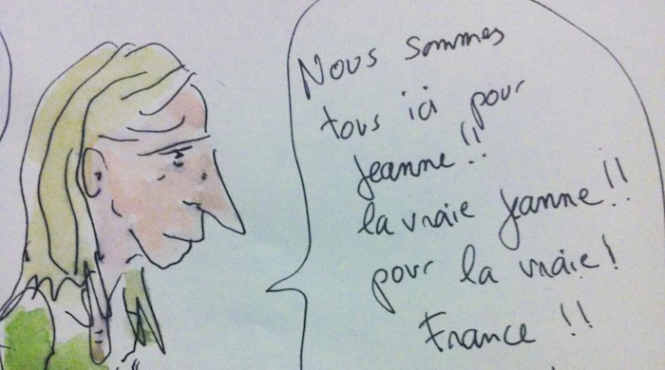 Nous sommes
tous ici pour
Jeanne !!
la vraie Jeanne !!
pour la vraie !
France !!